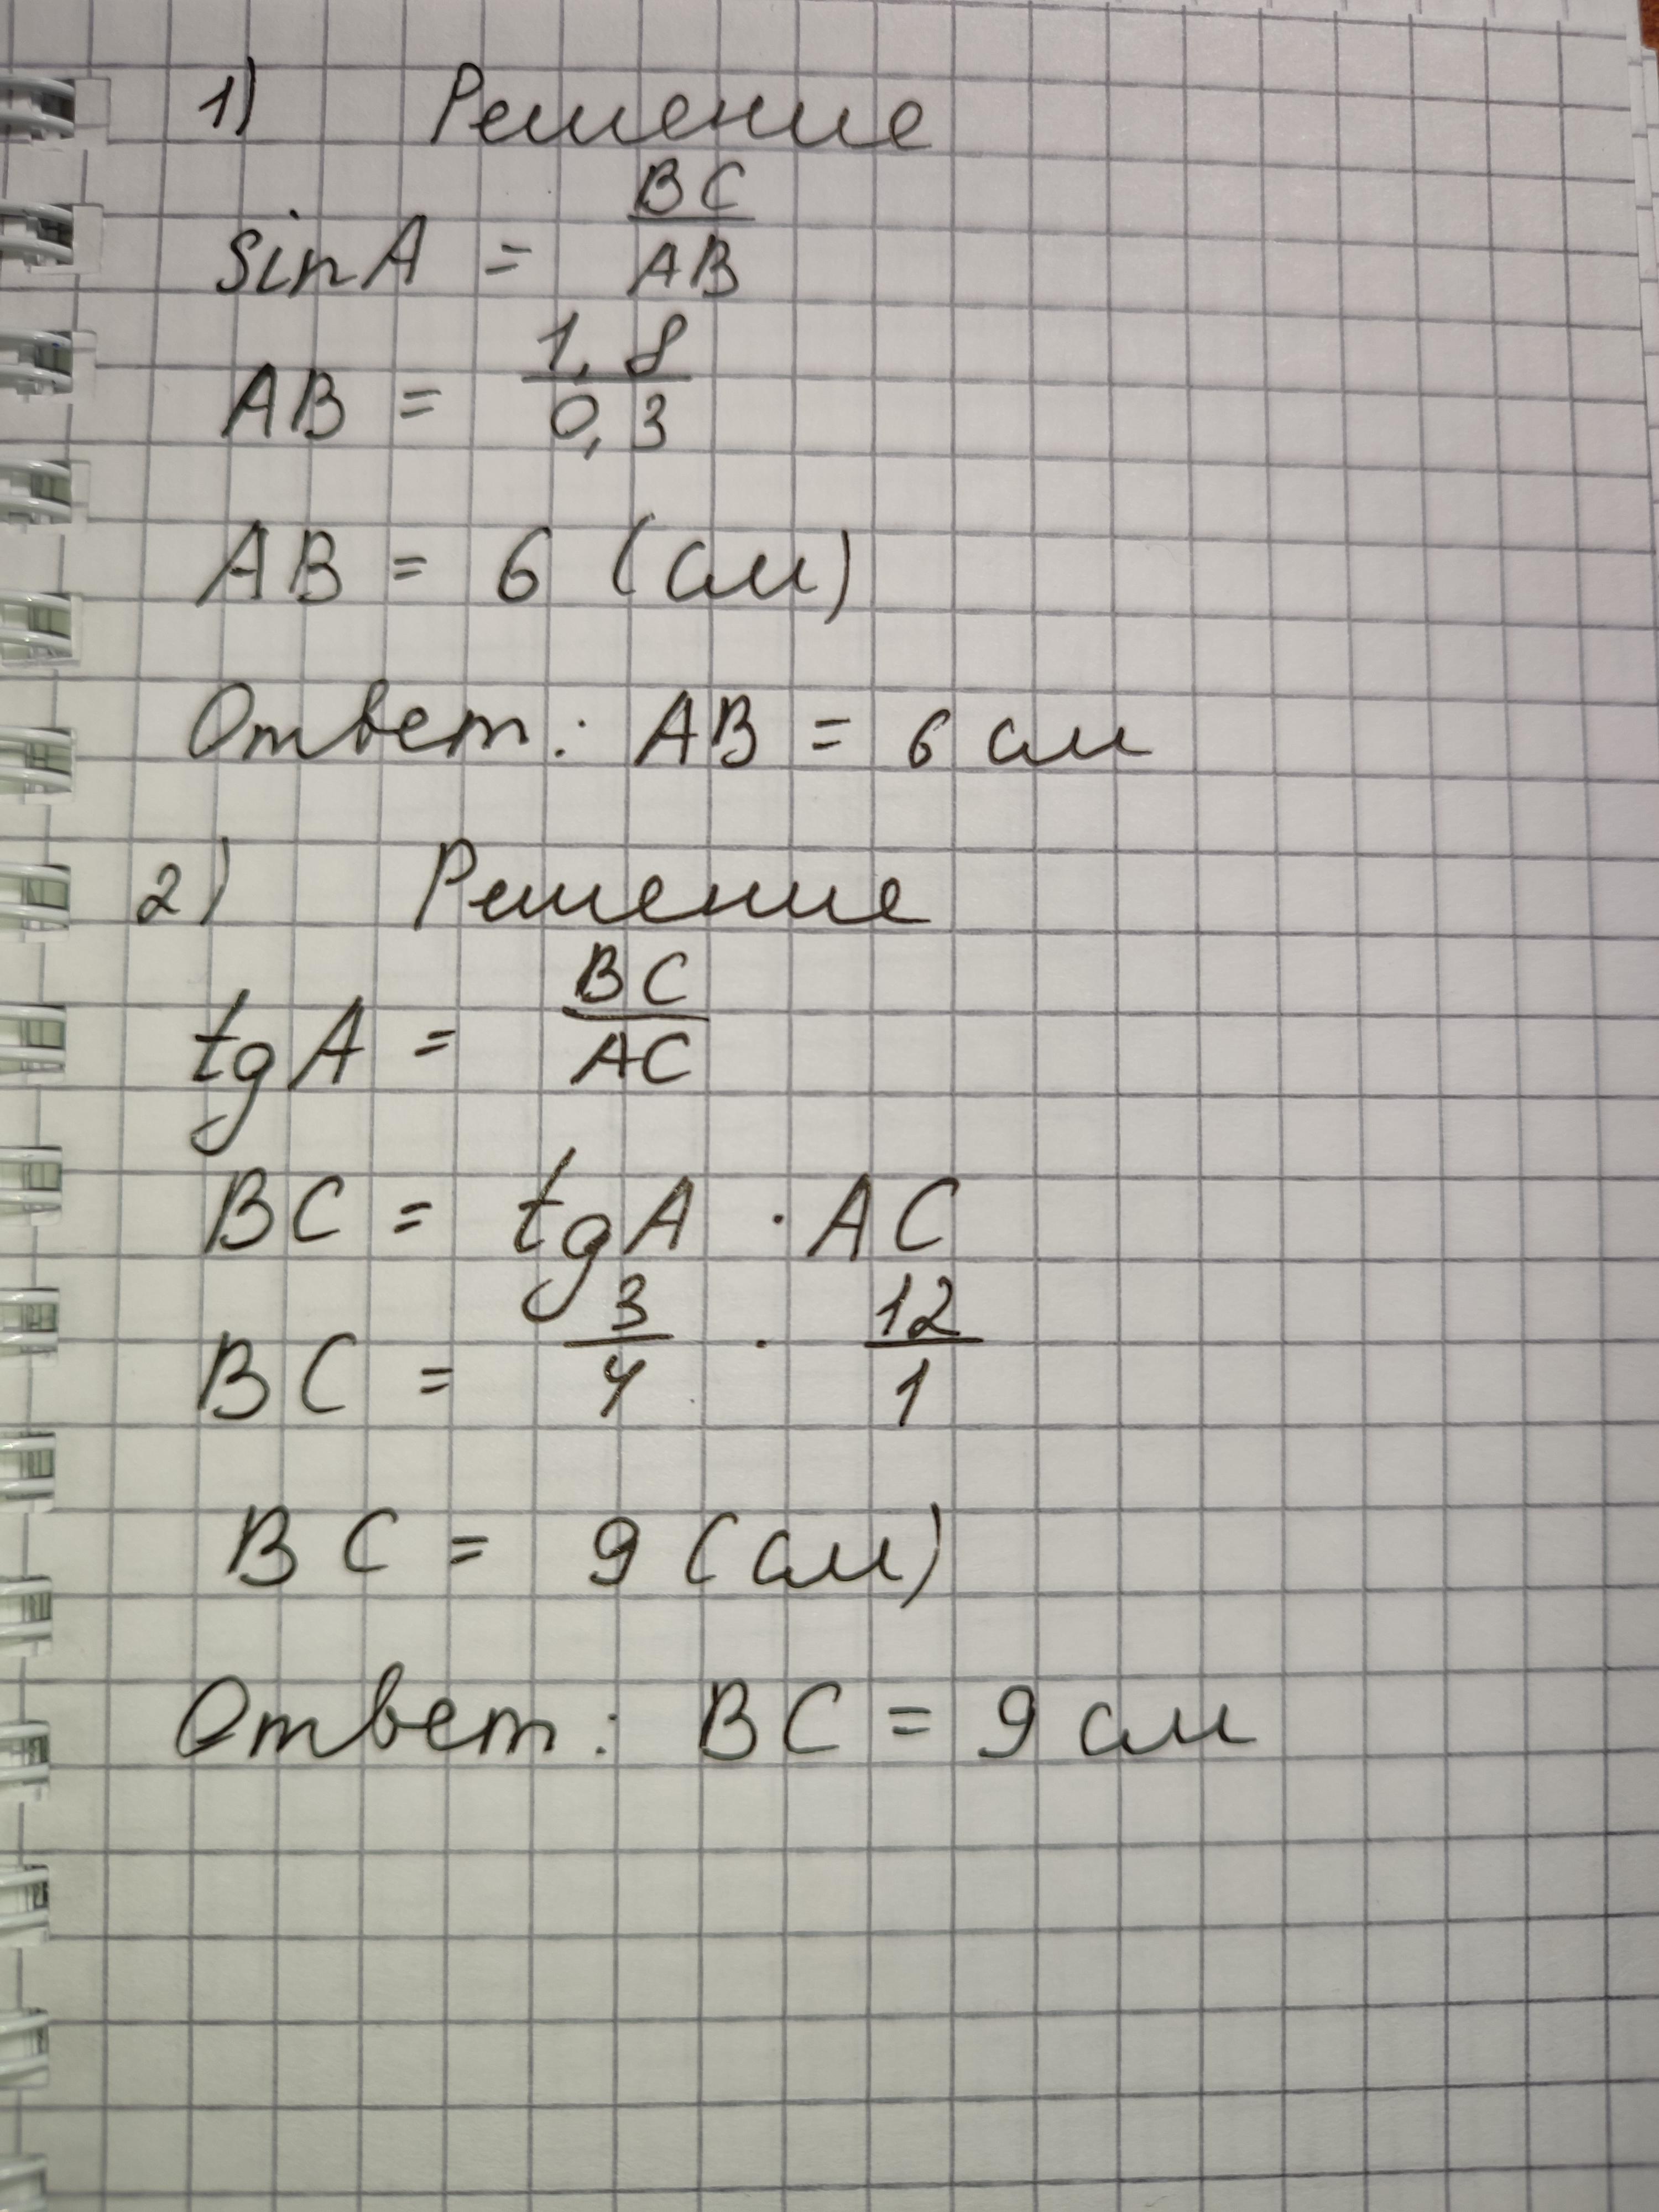 1) Решение
sinA = BC/AB
AB = 1,8/0,3
AB = 6 (см)
Ответ: AB = 6 см
2) Решение
tgA = BC/AC
BC = tgA · AC
BC = 3/4 · 12/1
BC = 9 (см)
Ответ: BC = 9 см